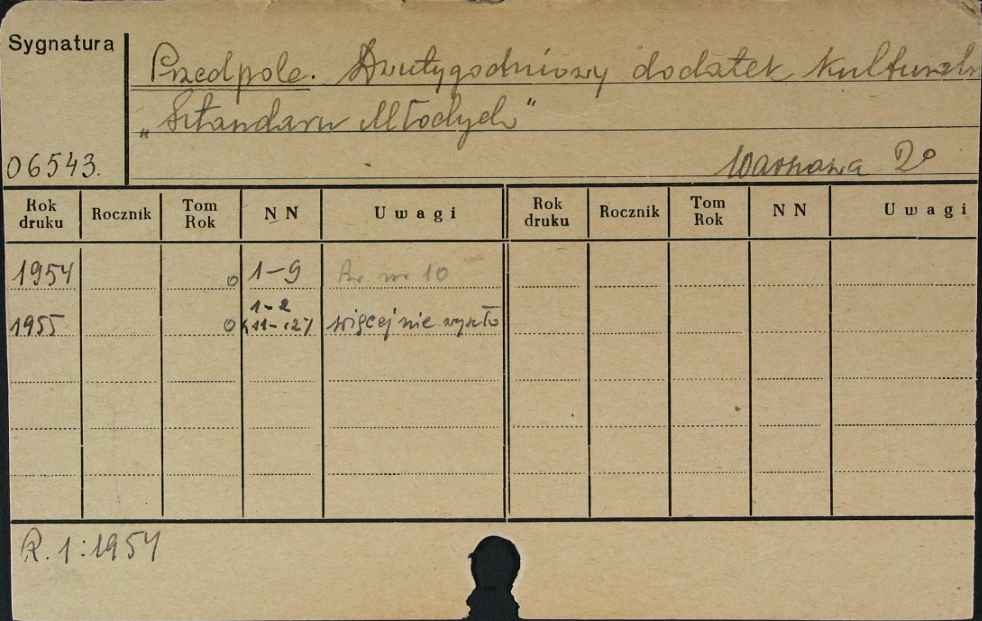 Sygnatura
Przedpole. Dwutygodniowy dodatek kulturaln
„Sztandaru Młodych"
06543.
Warszawa 2°
Rok druku Rocznik Tom Rok NN Uwagi Rok druku Rocznik Tom Rok NN Uwagi
1954 0 1-9 nr 10
1-2
1955 0 (11-12) więcej nie wyszło
R. 1:1954